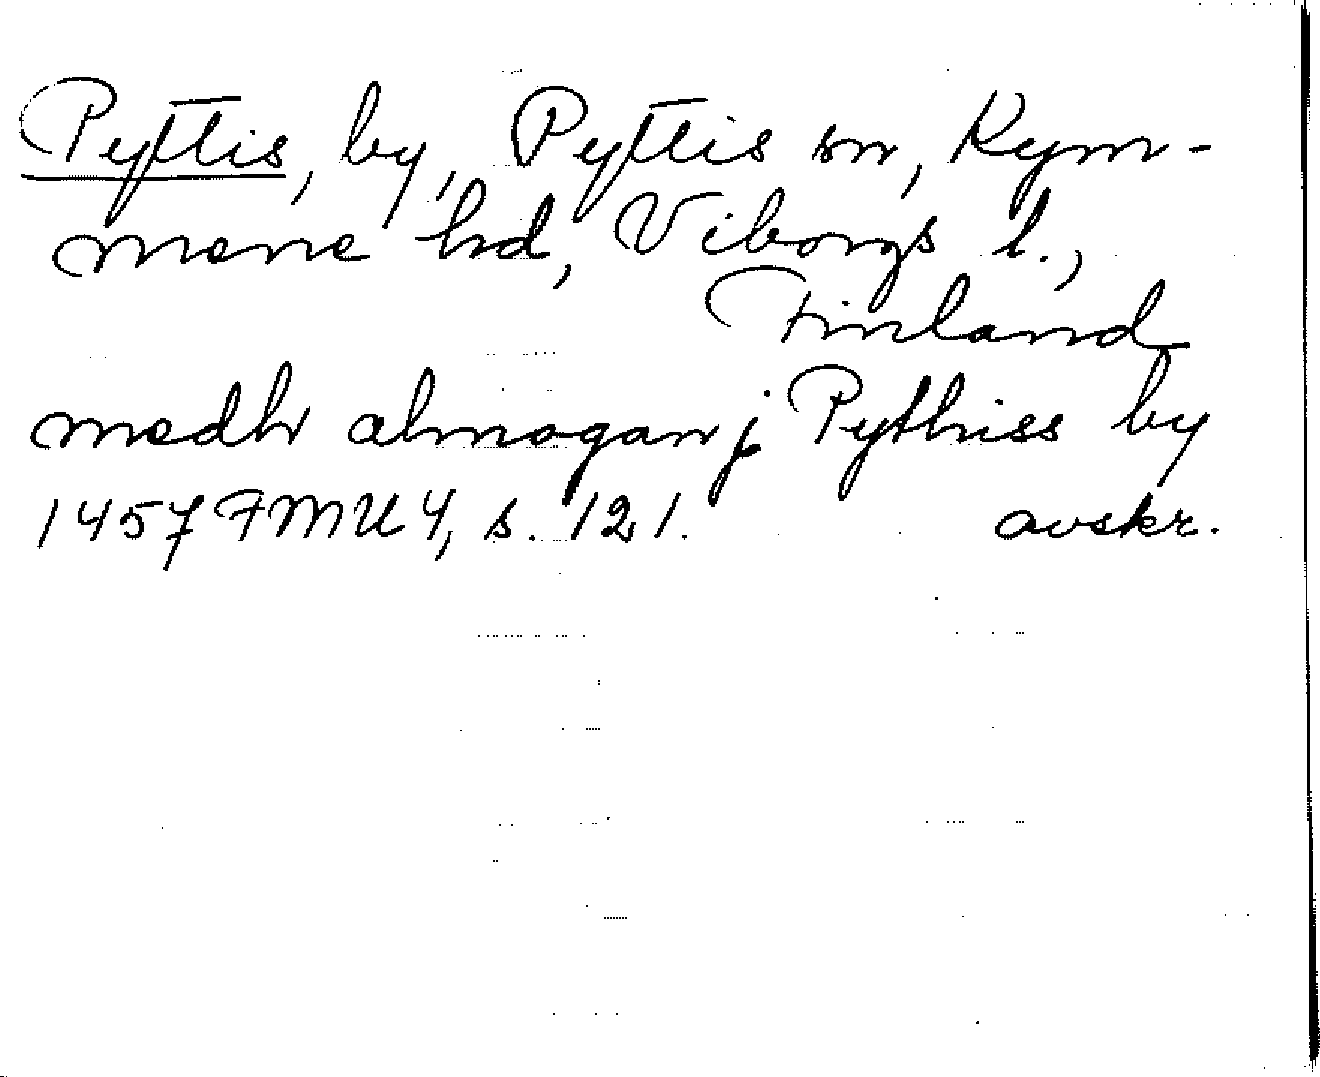 Pyttis, by, Pyttis sn, Kym-
mene hd, Viborgs l.,
Finland
medh almogan j Pythiss by
1457 FMU 4, s. 121. avskr.